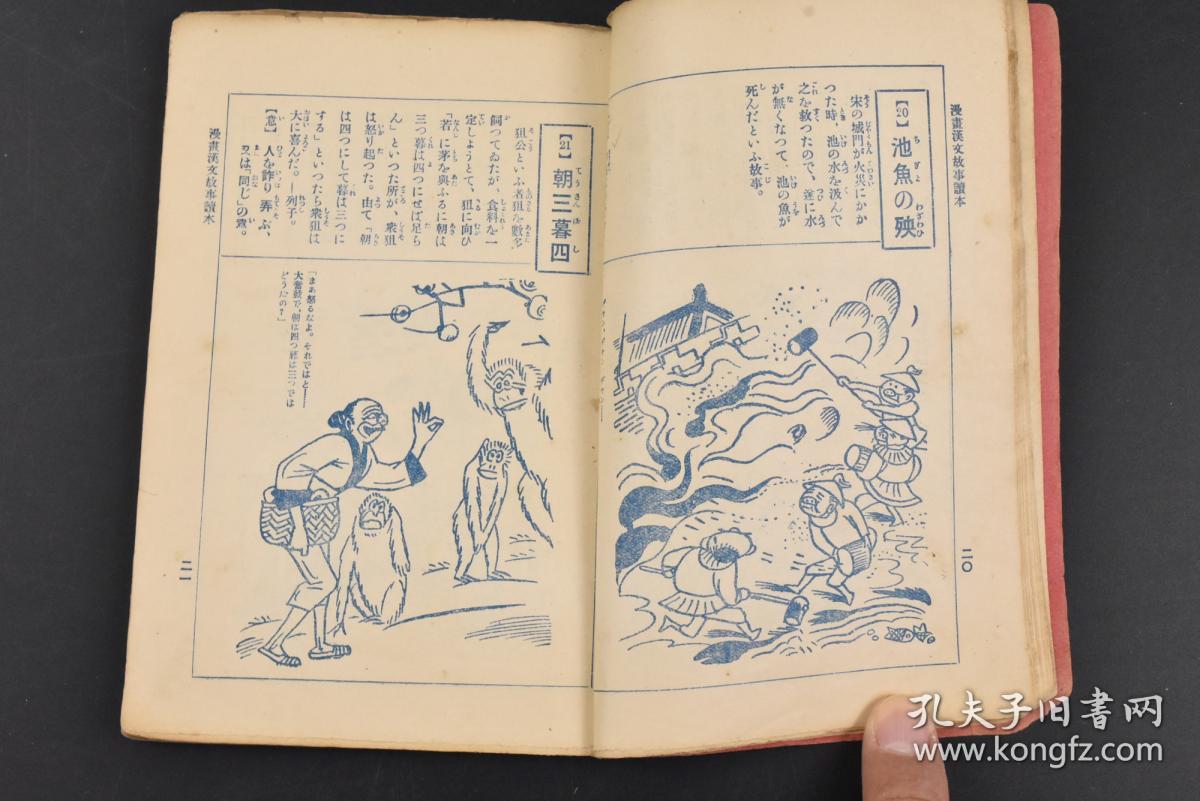 漫畫漢文故事讀本
【20】池魚の殃
宋の城門が火災にかか
つた時、池の水を汲んで
之を救つたので、遂に水
が無くなつて、池の魚が
死んだといふ故事。
二〇
【21】朝三暮四
狙公といふ者狙を數多
飼つてゐたが、食料を一
定しようとて、狙に向ひ
「若に茅を與ふるに朝は
三つ暮は四つにせば足ら
ん」といつた所が、衆狙
は怒り起つた。由て「朝
は四つにして暮は三つに
する」といつたら衆狙は
大に喜んだ。―列子。
【意】人を詐り弄ぶ、
又は「同じ」の意。
「まあ怒るなよ。それではと――
大奮發で、朝は四つ暮は三つでは
どうだの?」
漫畫漢文故事讀本
二一
孔夫子旧书网
www.kongfz.com